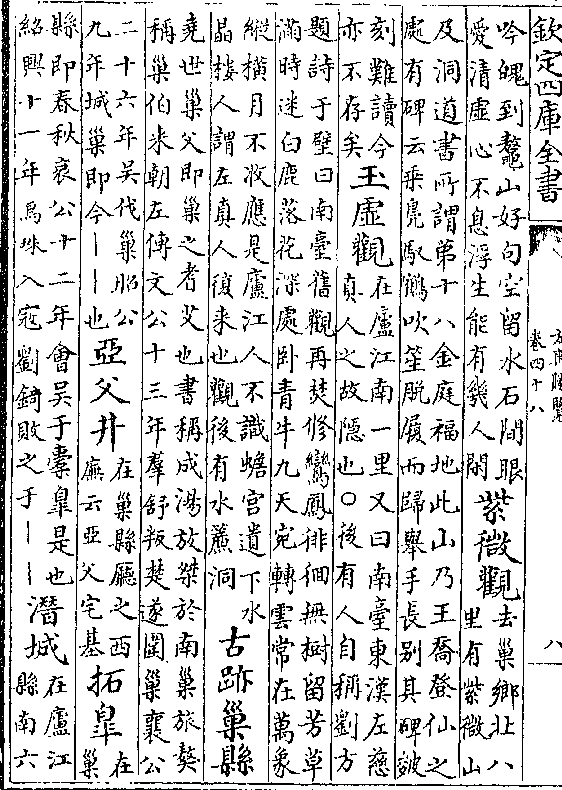 欽定四庫全書
方輿勝覽
卷四十八
八
吟魄到鼇山好句空留水石間眼
愛清虛心不息浮生能有幾人閒
紫微觀
去巢鄉北八
里有紫微山
及洞道書所謂第十八金庭福地此山乃王喬登仙之
處有碑云乘鳧馭鶴吹笙脫屣而歸舉手長别其碑皴
刻難讀今
亦不存矣
玉虛觀
在廬江南一里又曰南臺東漢左慈
真人之故隱也○後有人自稱劉方
題詩于壁曰南臺舊觀再焚修鸞鳳徘徊無樹留芳草
滿時迷白鹿落花深處卧青牛九天宛轉雲常在萬象
縱橫月不收應是廬江人不識蟾宮遺下水
晶樓人謂左真人復來也觀後有水簾洞
古跡巢縣
堯世巢父即巢之者艾也書稱成湯放桀於南巢旅獒
稱巢伯來朝左傳文公十三年羣舒叛楚遂圍巢襄公
二十六年吳伐巢昭公
九年城巢即今丨丨也
亞父井
在巢縣廳之西
廡云亞父宅基
拓皐
在
巢
縣即春秋哀公十二年會吳于橐皐是也
紹興十一年烏珠入寇劉錡敗之于丨丨
潛城
在廬江
縣南六